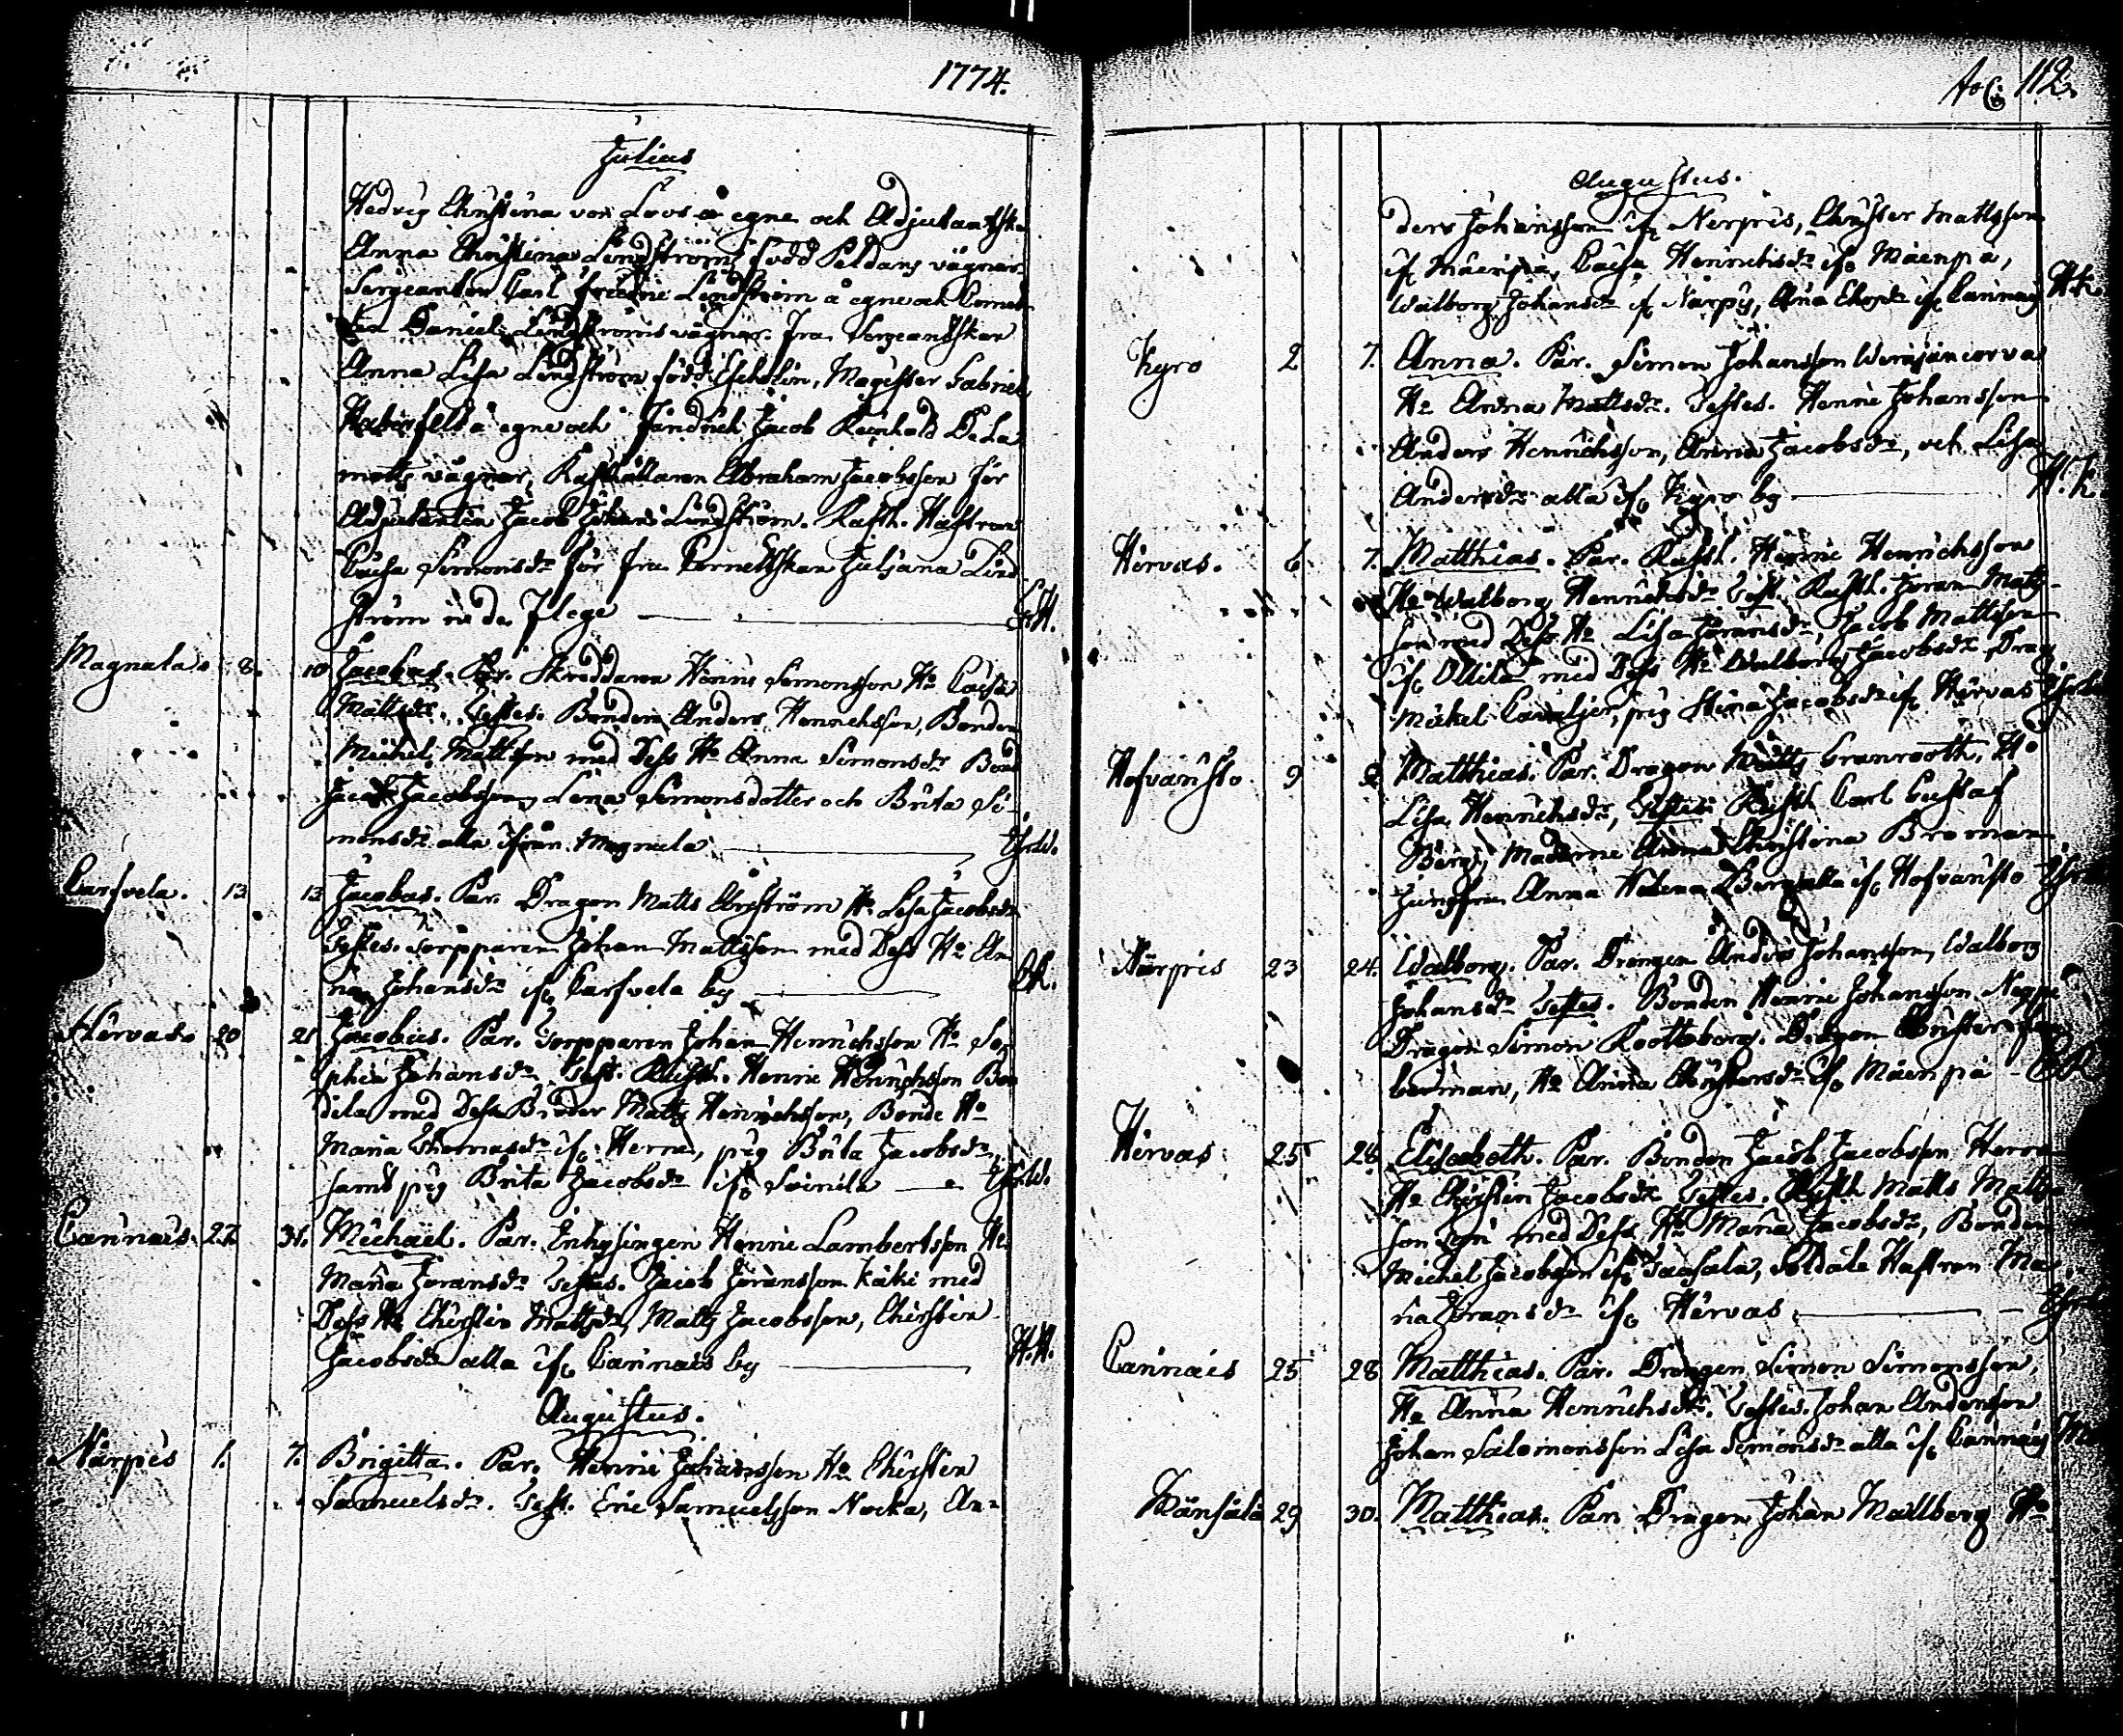 1774.
Julius
Hedvig Christina von Loos å egne och Adjutantskan
Anna Christina Lindströms född Peldans vägnar.
Sergeanten Carl Fredric Lindström å egne och Cornet
ten Daniel Lindströms vägnar. Fru Sergeantskan
Anna Lisa Lindström född Escholin, Magister Gabriel
Haberfelt å egne och Fändrich Jacob Reinhold De la
motts vägnar, Rusthållaren Abraham Jacobsson för
Adjutanten Jacob Johan Lindström. Rusth. Hustrun
Caisa Simonsdr för fru Cornettskan Juliana Lind
ström
Magnula 8. 10 Jacobus. Par. Skreddaren Henric Simonsson Ho Caisa
Mattsdr. Testes. Bonden Anders Henrichsson, Bonden
Michel Mattsson med Dess Ho Anna Simonsdr Bond
Jacob Jacobsson, Lena Simonsdotter och Brita Si-
monsdr alla ifrån Magnula
Carfvela. 13 13 Jacobus. Par. Dragon Matts Ahrström Ho Lisa Jacobsdr
Testes. Torpparen Johan Mattsson med Dess Ho An
na Johansdr if. Carfvela by
Hirvas. 20 21 Jacobus. Par. Torpparen Johan Henrichsson Ho So
phia Johansdr Test. Rusth. Henric Henrichsson Bon
dila med Dess Broder Matts Henrichsson, Bonde Ho
Maria Thomasdr if. Herne, pig Brita Jacobsdr,
samt pig Brita Jacobsdr if. Soinila
Cannais 27. 31. Michaël. Par. Inhysingen Henric Lambertsson Ho
Maria Jöransdr Testes. Jacob Jöransson Käki med
Dess Ho Christin Mattsdr, Matts Jacobsson, Christin
Jacobsdr alla if. Cannais by H.H.
Augustus.
Närpis 1. 7. Brigitta. Par. Henric Johansson Ho Christin
Samuelsdr. Test. Eric Samuelsson Nocka, An-
112.
Augustus.
ders Johansson if. Nerpis, Christer Mattsson
if. Mäenpä, Caisa Henrichsdr if. Mäenpä,
Walborg Johansdr if. Närpis, Ana Chrsdr if. Cannais
Kyro 2 7. Anna. Par. Simon Johansson
Ho Anna Mattsdr. Testes. Henric Johansson
Anders Henrichsson, Anna Jacobsdr, och Lisa
Andersdr alla if. Kyro by
Hirvas. 6. 7. Matthias. Par. Rusth. Henric Henrichsson
Ho Walborg Henrichsdr Test. Rusth. Jöran Matts-
son med Dess Ho Lisa Jöransdr, Jacob Mattsson
if. Ollila med Dess Ho Walborg Jacobsdr Drag
Michel Cavaljer, pig Stina Jacobsdr if. Hirvas
Hofvansto 9 9. Matthias. Par. Dragon Matts Granrooth, Ho
Lisa Henrichsdr, Testes Rusth Carl Gustaf
Berg, Madame Anna Christina Broman
Jungfru Anna Helena Berg alla if. Hofvansto
Närpis 23 24. Walborg. Par. Drängen Anders Johansson, Walborg
Johansdr Testes. Bonden Henric Johansson
Dragon Simon Roottsborg. Dragon Christer
berman, Ho Anna Christersdr if. Mäenpä
Hirvas 25 26 Elisabeth. Par. Bonden Jacob Jacobsson
Ho Christin Jacobsdr Testes. Rusth Matts Matts
son med Dess Ho Maria Jacobsdr, Bonden
Michel Jacobsson if. Soldate Hustrun Ma
ria Jöransdr if. Hirvas
Cannais 25 28 Matthias. Par. Drängen Simon Simonsson,
Ho Anna Henrichsdr. Testes. Johan Andersson
Johan Salomonsson Lisa Simonsdr alla if. Cannais
29 30. Matthias. Par. Dragon Johan Mallberg Ho